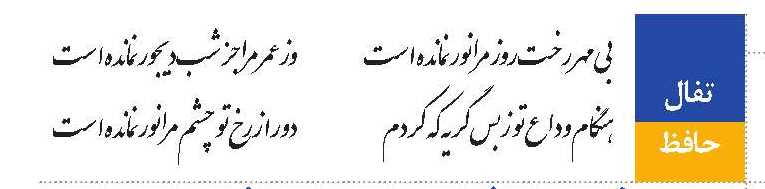 بی مهر رخت روز مرا نور نمانده است
وز عمر مرا جز شب دیجور نمانده است
هنگام وداع تو ز بس گریه که کردم
دور از رخ تو چشم مرا نور نمانده است
تفال
حافظ